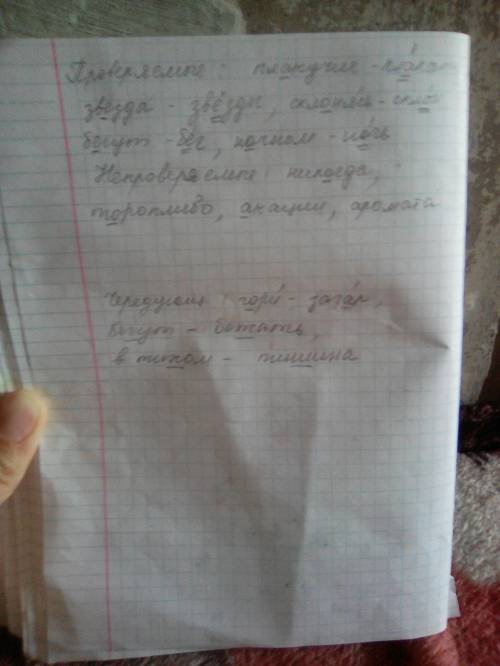 Проверяемые: плакучие - плакать
звезда - звёзды, склоняя - скло
бегут - бег, ночном - ночь
Непроверяемые: никогда,
торопливо, акации, аромата
Чередующ: гори - загар,
бегут - бежать,
в тихом - тишина